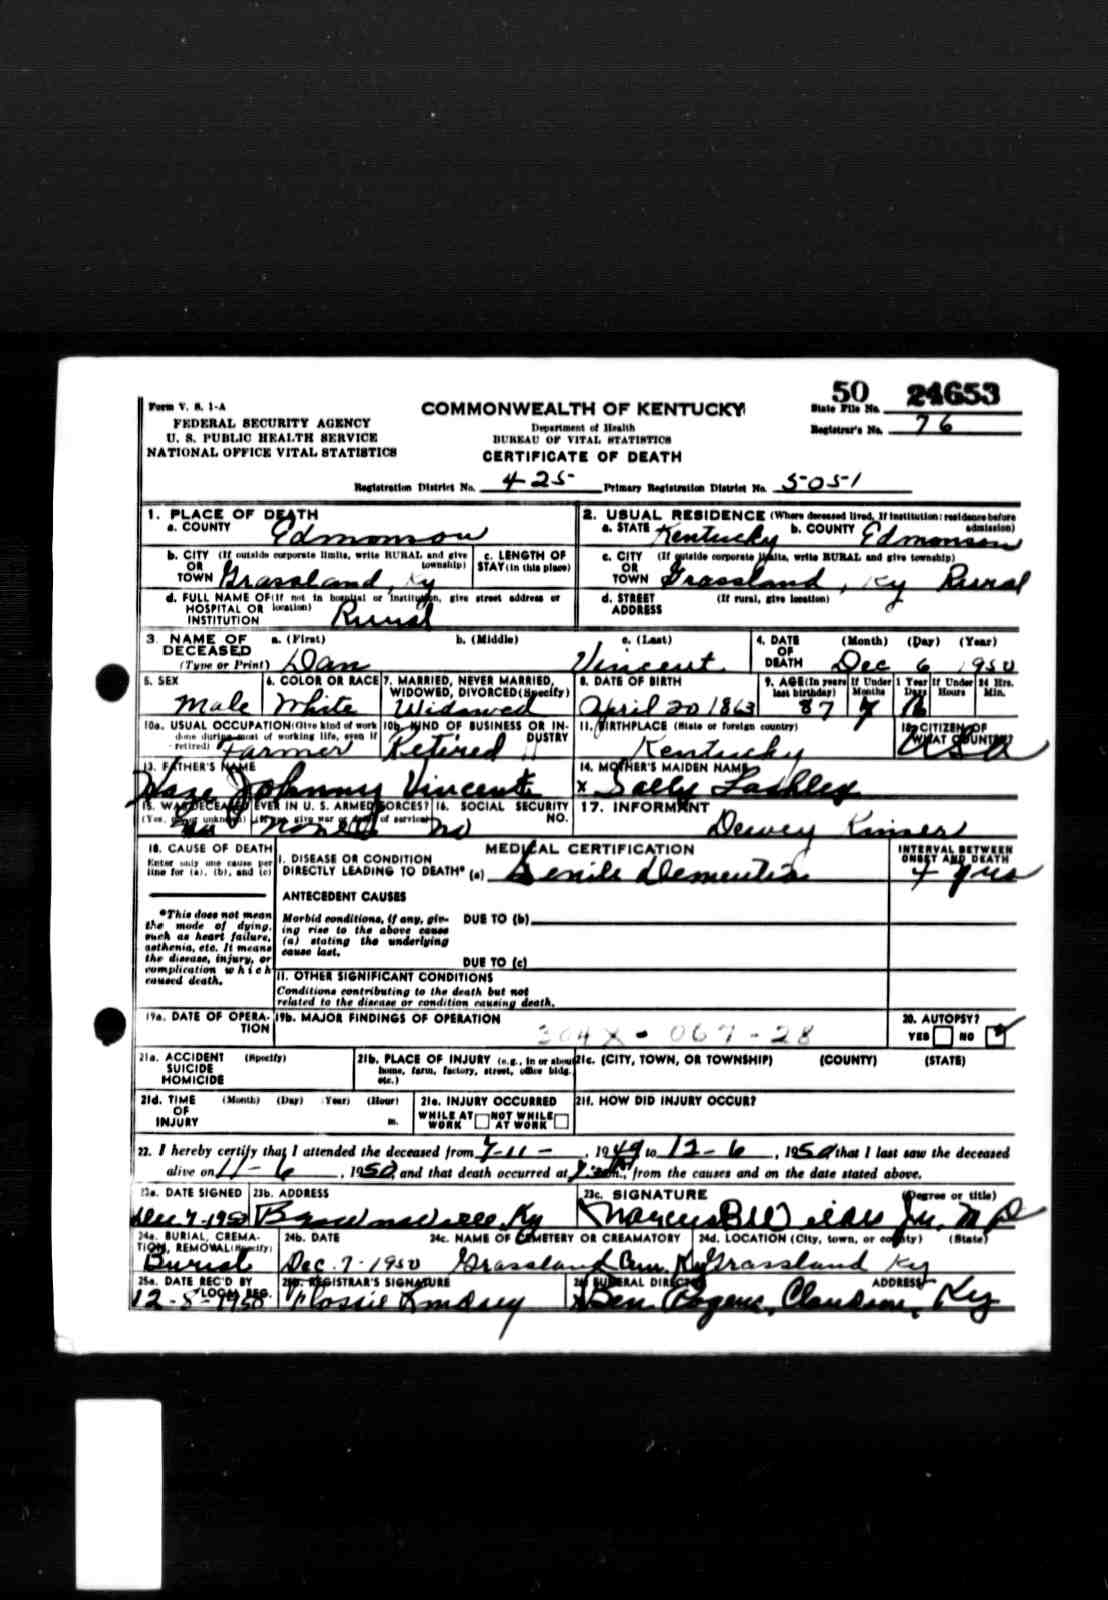 50 24653
Form V. S. 1-A
COMMONWEALTH OF KENTUCKY
State File No.
FEDERAL SECURITY AGENCY
Department of Health
Registrar's No. 76
U. S. PUBLIC HEALTH SERVICE
BUREAU OF VITAL STATISTICS
NATIONAL OFFICE VITAL STATISTICS
CERTIFICATE OF DEATH
Registration District No. 425 Primary Registration District No. 5051
1. PLACE OF DEATH
a. COUNTY Edmonson
2. USUAL RESIDENCE (Where deceased lived, If institution: residence before admission)
a. STATE Kentucky b. COUNTY Edmonson
b. CITY (If outside corporate limits, write RURAL and give township)
OR
TOWN Grassland, Ky
c. LENGTH OF
STAY (in this place)
c. CITY (If outside corporate limits, write RURAL and give township)
OR
TOWN Grassland, Ky Rural
d. FULL NAME OF (If not in hospital or institution, give street address or location)
HOSPITAL OR
INSTITUTION Rural
d. STREET (If rural, give location)
ADDRESS
3. NAME OF DECEASED a. (First) b. (Middle) c. (Last)
(Type or Print) Dan Vincent
4. DATE OF DEATH (Month) (Day) (Year)
Dec 6 1950
5. SEX
Male
6. COLOR OR RACE
White
7. MARRIED, NEVER MARRIED,
WIDOWED, DIVORCED (Specify)
Widowed
8. DATE OF BIRTH
April 20 1863
9. AGE (In years last birthday) If Under 1 Year If Under 24 Hrs.
Months Days Hours Min.
87 7 16
10a. USUAL OCCUPATION (Give kind of work
done during most of working life, even if
retired) Farmer
10b. KIND OF BUSINESS OR INDUSTRY
Retired
11. BIRTHPLACE (State or foreign country)
Kentucky
12. CITIZEN OF
WHAT COUNTRY?
USA
13. FATHER'S NAME
Johnny Vincent
14. MOTHER'S MAIDEN NAME
x Sally Lashley
15. WAS DECEASED EVER IN U. S. ARMED FORCES?
(Yes, no, or unknown) (If yes, give war or dates of service)
None
16. SOCIAL SECURITY NO.
No
17. INFORMANT
Dewey
18. CAUSE OF DEATH
Enter only one cause per
line for (a), (b), and (c)
MEDICAL CERTIFICATION
INTERVAL BETWEEN
ONSET AND DEATH
I. DISEASE OR CONDITION
DIRECTLY LEADING TO DEATH* (a) Senile Dementia
yrs
*This does not mean
the mode of dying,
such as heart failure,
asthenia, etc. It means
the disease, injury, or
complication which
caused death.
ANTECEDENT CAUSES
Morbid conditions, if any, giv-
ing rise to the above cause
(a) stating the underlying
cause last.
DUE TO (b)
DUE TO (c)
II. OTHER SIGNIFICANT CONDITIONS
Conditions contributing to the death but not
related to the disease or condition causing death.
19a. DATE OF OPERA-
TION
19b. MAJOR FINDINGS OF OPERATION
304X - 067 - 28
20. AUTOPSY?
YES NO ✓
21a. ACCIDENT (Specify)
SUICIDE
HOMICIDE
21b. PLACE OF INJURY (e.g., in or about
home, farm, factory, street, office bldg.
etc.)
21c. (CITY, TOWN, OR TOWNSHIP) (COUNTY) (STATE)
21d. TIME (Month) (Day) (Year) (Hour)
OF
INJURY m.
21e. INJURY OCCURRED
WHILE AT WORK NOT WHILE AT WORK
21f. HOW DID INJURY OCCUR?
22. I hereby certify that I attended the deceased from 7-11-, 1949 to 12-6, 1950 that I last saw the deceased
alive on 11-6, 1950, and that death occurred at m., from the causes and on the date stated above.
23a. DATE SIGNED
Dec 7-1950
23b. ADDRESS
Brownsville, Ky
23c. SIGNATURE (Degree or title)
Marcus Jr. MD
24a. BURIAL, CREMA-
TION, REMOVAL (Specify)
Burial
24b. DATE
Dec. 7-1950
24c. NAME OF CEMETERY OR CREAMATORY
Grassland Cem. Ky
24d. LOCATION (City, town, or county) (State)
Grassland Ky
25a. DATE REC'D BY
LOCAL REG.
12-8-1950
25b. REGISTRAR'S SIGNATURE
Flossie Lindsey
26. FUNERAL DIRECTOR ADDRESS
Ben Ky